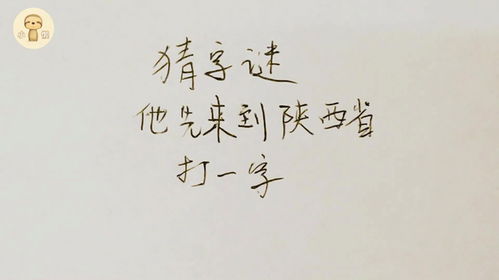 猜字谜
他先来到陕西省
打一字